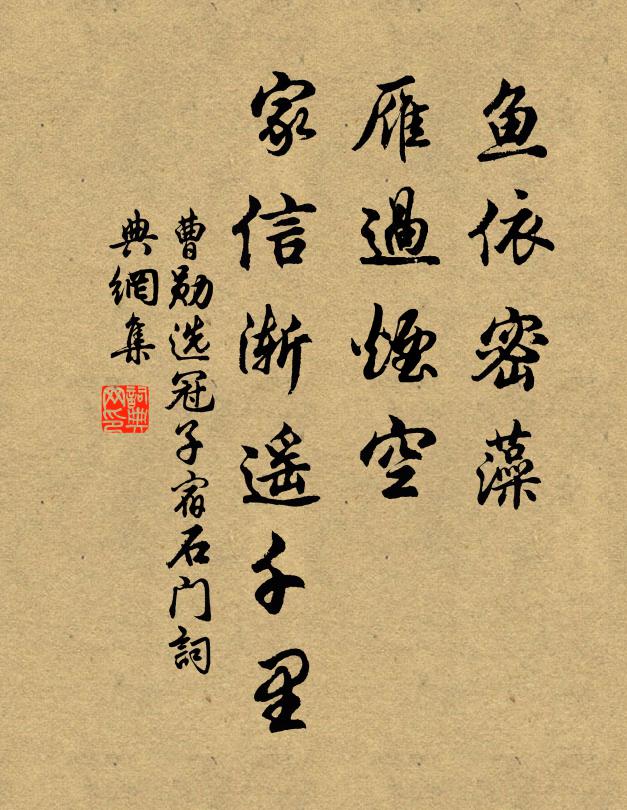 鱼依密藻
雁過煙空
家信渐遥千里
曹勋选冠子宿石门詞
典網集
詞典網印